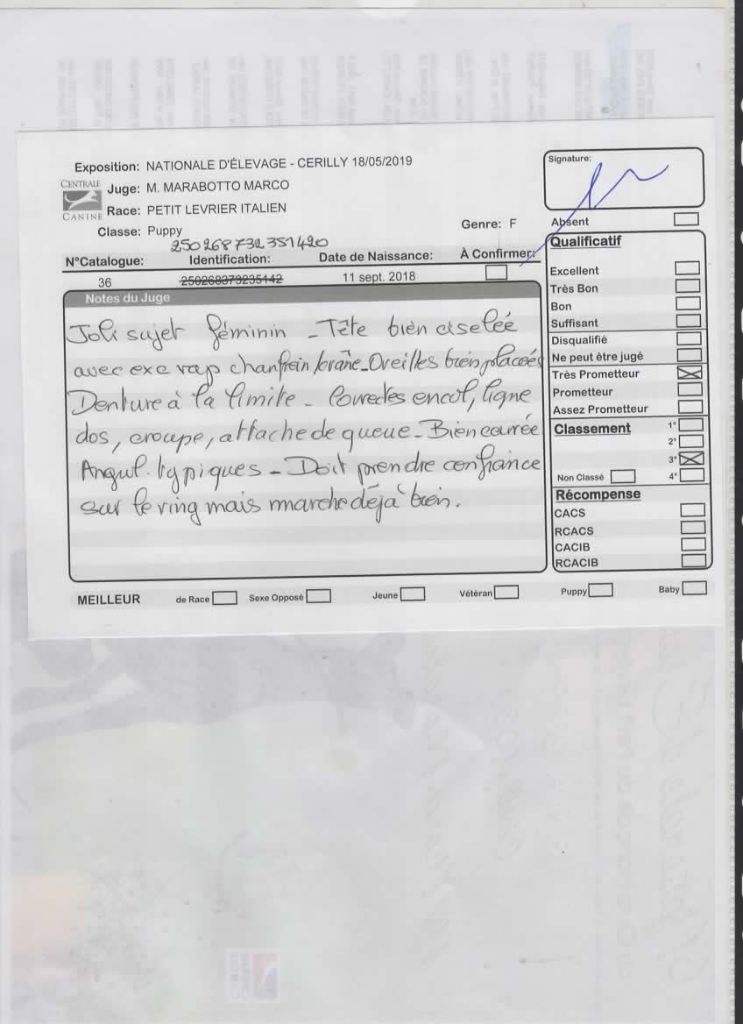 Exposition: NATIONALE D'ÉLEVAGE - CERILLY 18/05/2019
CENTRALE CANINE
Juge: M. MARABOTTO MARCO
Race: PETIT LEVRIER ITALIEN
Classe: Puppy
Genre: F
250268732351420
N°Catalogue: Identification: Date de Naissance: À Confirmer:
36 250268379235142 11 sept. 2018
Notes du Juge
Joli sujet féminin - Tête bien ciselée
avec exc rap chanfrein/crâne - Oreilles bien placées
Denture à la limite - Correctes encol, ligne
dos, croupe, attache de queue - Bien carrée
Angul. typiques - Doit prendre confiance
sur le ring mais marche déjà bien.
Signature:
Absent
Qualificatif
Excellent
Très Bon
Bon
Suffisant
Disqualifié
Ne peut être jugé
Très Prometteur
Prometteur
Assez Prometteur
Classement 1°
2°
3°
Non Classé 4°
Récompense
CACS
RCACS
CACIB
RCACIB
MEILLEUR de Race Sexe Opposé Jeune Vétéran Puppy Baby